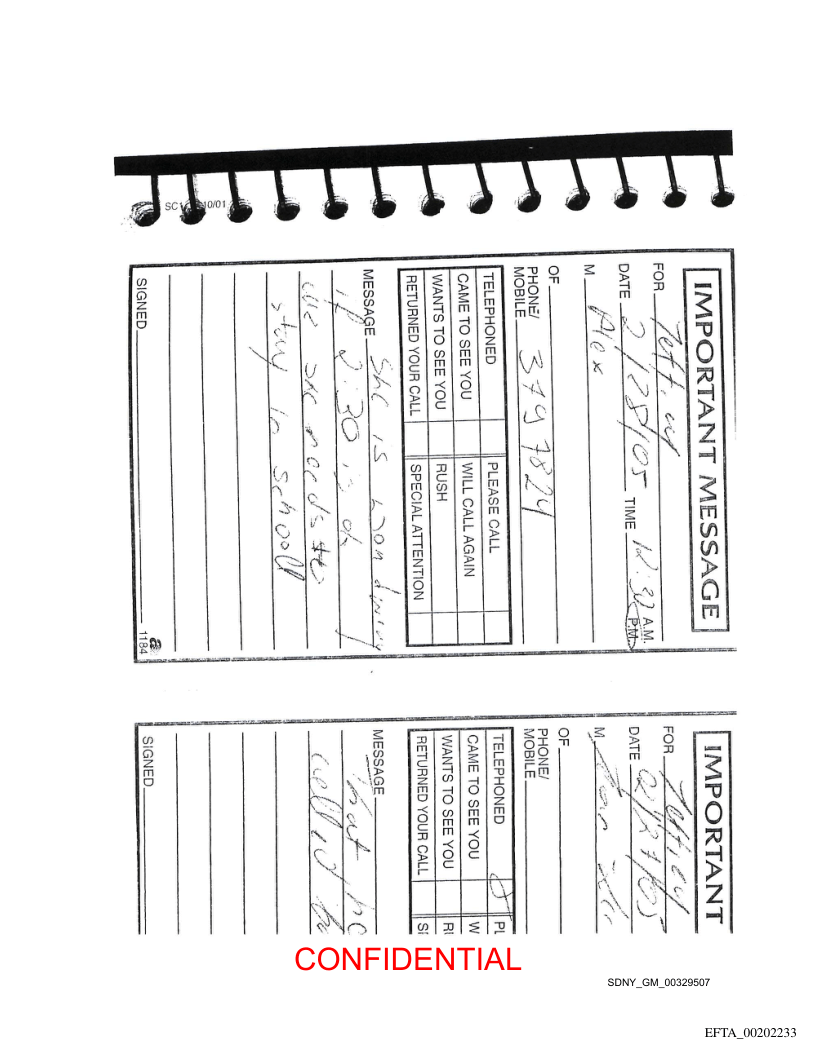 SC1 10/01
IMPORTANT MESSAGE
FOR Jeffrey
DATE 2/28/05 TIME 12:30 A.M. P.M.
M Alex
OF
PHONE/
MOBILE 379 7824
TELEPHONED PLEASE CALL
CAME TO SEE YOU WILL CALL AGAIN
WANTS TO SEE YOU RUSH
RETURNED YOUR CALL SPECIAL ATTENTION
MESSAGE She is wondering
if 2:30 is ok
she needs to
stay in school
SIGNED
a 1184
IMPORTANT
FOR Jeffrey
DATE 2/27/05
M
OF
PHONE/
MOBILE
TELEPHONED PL
CAME TO SEE YOU W
WANTS TO SEE YOU RI
RETURNED YOUR CALL
MESSAGE
that he
SIGNED
CONFIDENTIAL
SDNY_GM_00329507
EFTA_00202233